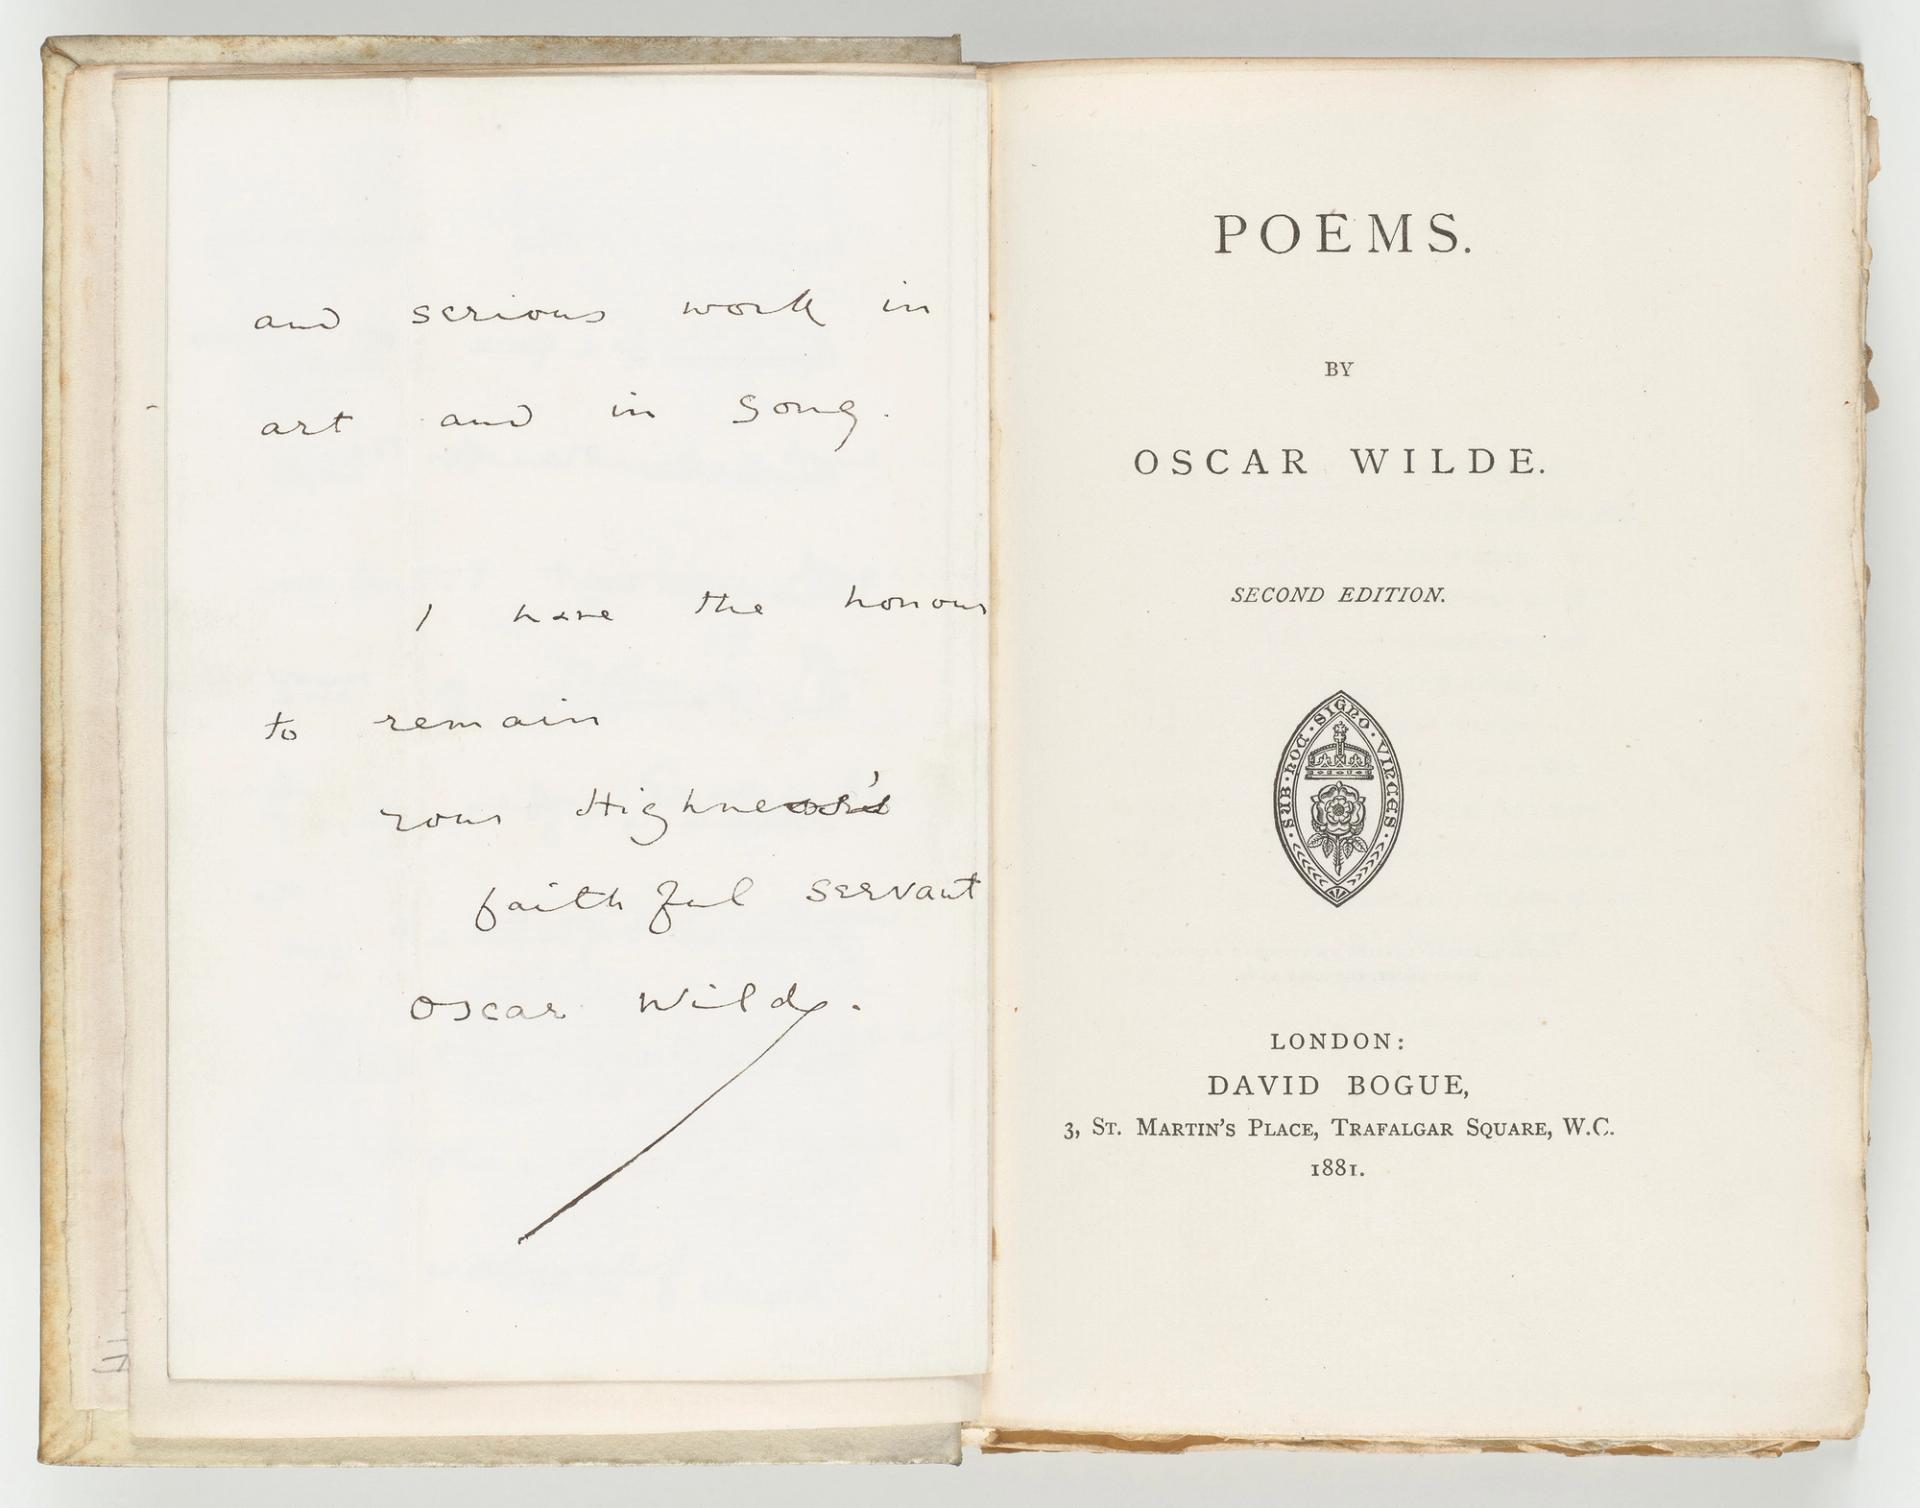 and serious work in
art and in song.
I have the honour
to remain
your Highness's
faithful servant
Oscar Wilde.
POEMS.
BY
OSCAR WILDE.
SECOND EDITION.
SUB · HOC · SIGNO · VINCES ·
LONDON:
DAVID BOGUE,
3, ST. MARTIN'S PLACE, TRAFALGAR SQUARE, W.C.
1881.